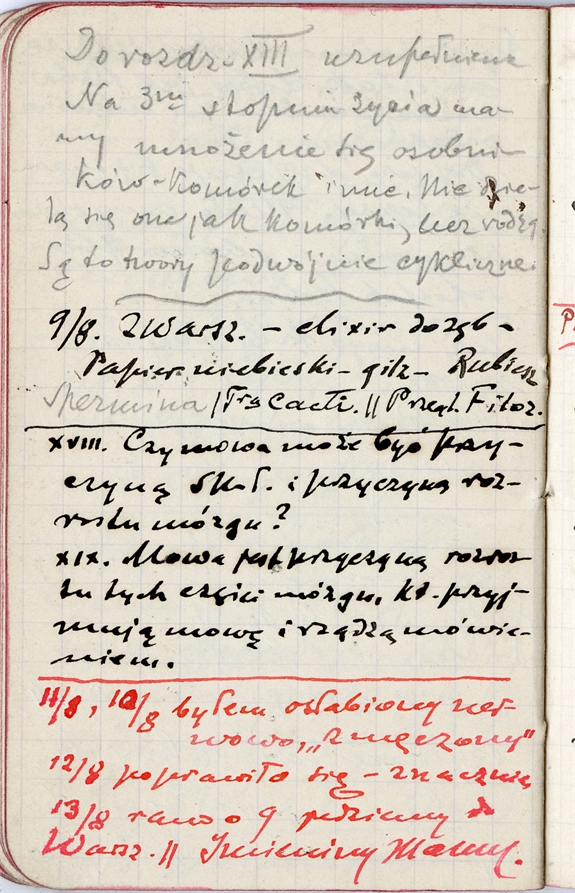 Do rozdz. XIII uzupełnienie
Na 3m stopniu życia ma-
my mnożenie się osobni-
ków-komórek inne. Nie dzie-
lą się one jak komórki, lecz rodzą.
Są to twory podwójnie cykliczne.
9/8. Z Warsz. – elixir do zęb –
Papier niebieski – gilz –
Spermina / Tra Cacti. // Przegl. Filoz.
XVIII. Czy mowa może być przy-
czyną Skł. i przyczyną roz-
rostu mózgu?
XIX. Mowa jest przyczyną rozros-
tu tych części mózgu, kt. przyj-
mują mowę i rządzą mówie-
niem.
11/8, 10/8 byłem osłabiony ner-
wowo, „zmęczony"
12/8 poprawiło się – znacznie
13/8 rano o 9 jedziemy do
Warsz. // Imieniny
P